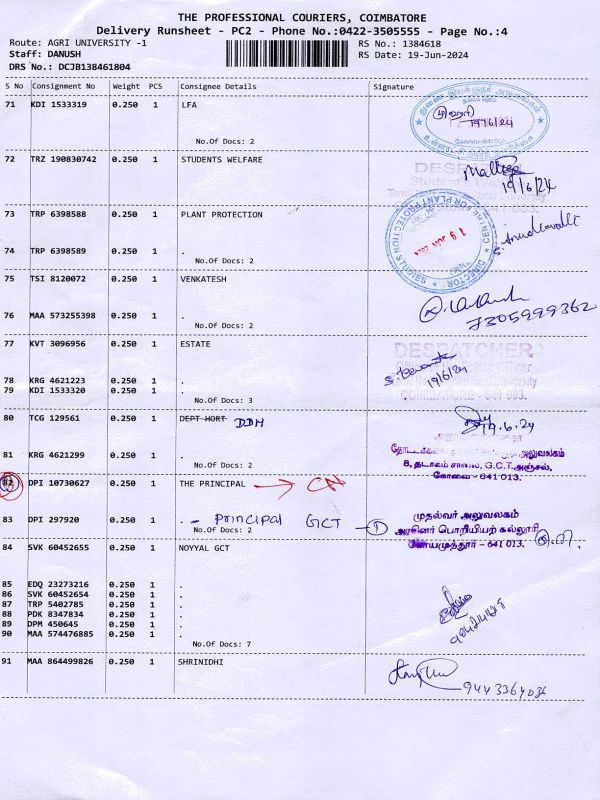 THE PROFESSIONAL COURIERS, COIMBATORE
Delivery Runsheet - PC2 - Phone No.:0422-3505555 - Page No.:4
Route: AGRI UNIVERSITY -1 RS No.: 1384618
Staff: DANUSH RS Date: 19-Jun-2024
DRS No.: DCJB138461804
S No Consignment No Weight PCS Consignee Details Signature
71 KDI 1533319 0.250 1 LFA
19/6/24
No.Of Docs: 2
72 TRZ 190830742 0.250 1 STUDENTS WELFARE
19/6/24
73 TRP 6398588 0.250 1 PLANT PROTECTION
CENTRE FOR PLANT PROTECTION STUDIES
DIRECTOR
19 JUN 2024
74 TRP 6398589 0.250 1 .
No.Of Docs: 2
75 TSI 8120072 0.250 1 VENKATESH
76 MAA 573255398 0.250 1 .
No.Of Docs: 2
7305999362
77 KVT 3096956 0.250 1 ESTATE
DESPATCHER
78 KRG 4621223 0.250 1 .
19/6/24
79 KDI 1533320 0.250 1 .
No.Of Docs: 3
80 TCG 129561 0.250 1 DEPT HORT DDH
19.6.24
81 KRG 4621299 0.250 1 .
அலுவலகம்
No.Of Docs: 2
8, தடாகம் சாலை, G.C.T. அஞ்சல்,
கோவை - 641 013.
82 DPI 10730627 0.250 1 THE PRINCIPAL → CN
83 DPI 297920 0.250 1 . - Principal GCT - 1
No.Of Docs: 2
முதல்வர் அலுவலகம்
அரசினர் பொறியியற் கல்லூரி
கோயமுத்தூர் - 641 013.
84 SVK 60452655 0.250 1 NOYYAL GCT
85 EDQ 23273216 0.250 1 .
86 SVK 60452654 0.250 1 .
87 TRP 5402785 0.250 1 .
88 PDK 8347834 0.250 1 .
89 DPM 450645 0.250 1 .
90 MAA 574476885 0.250 1 .
No.Of Docs: 7
91 MAA 864499826 0.250 1 SHRINIDHI